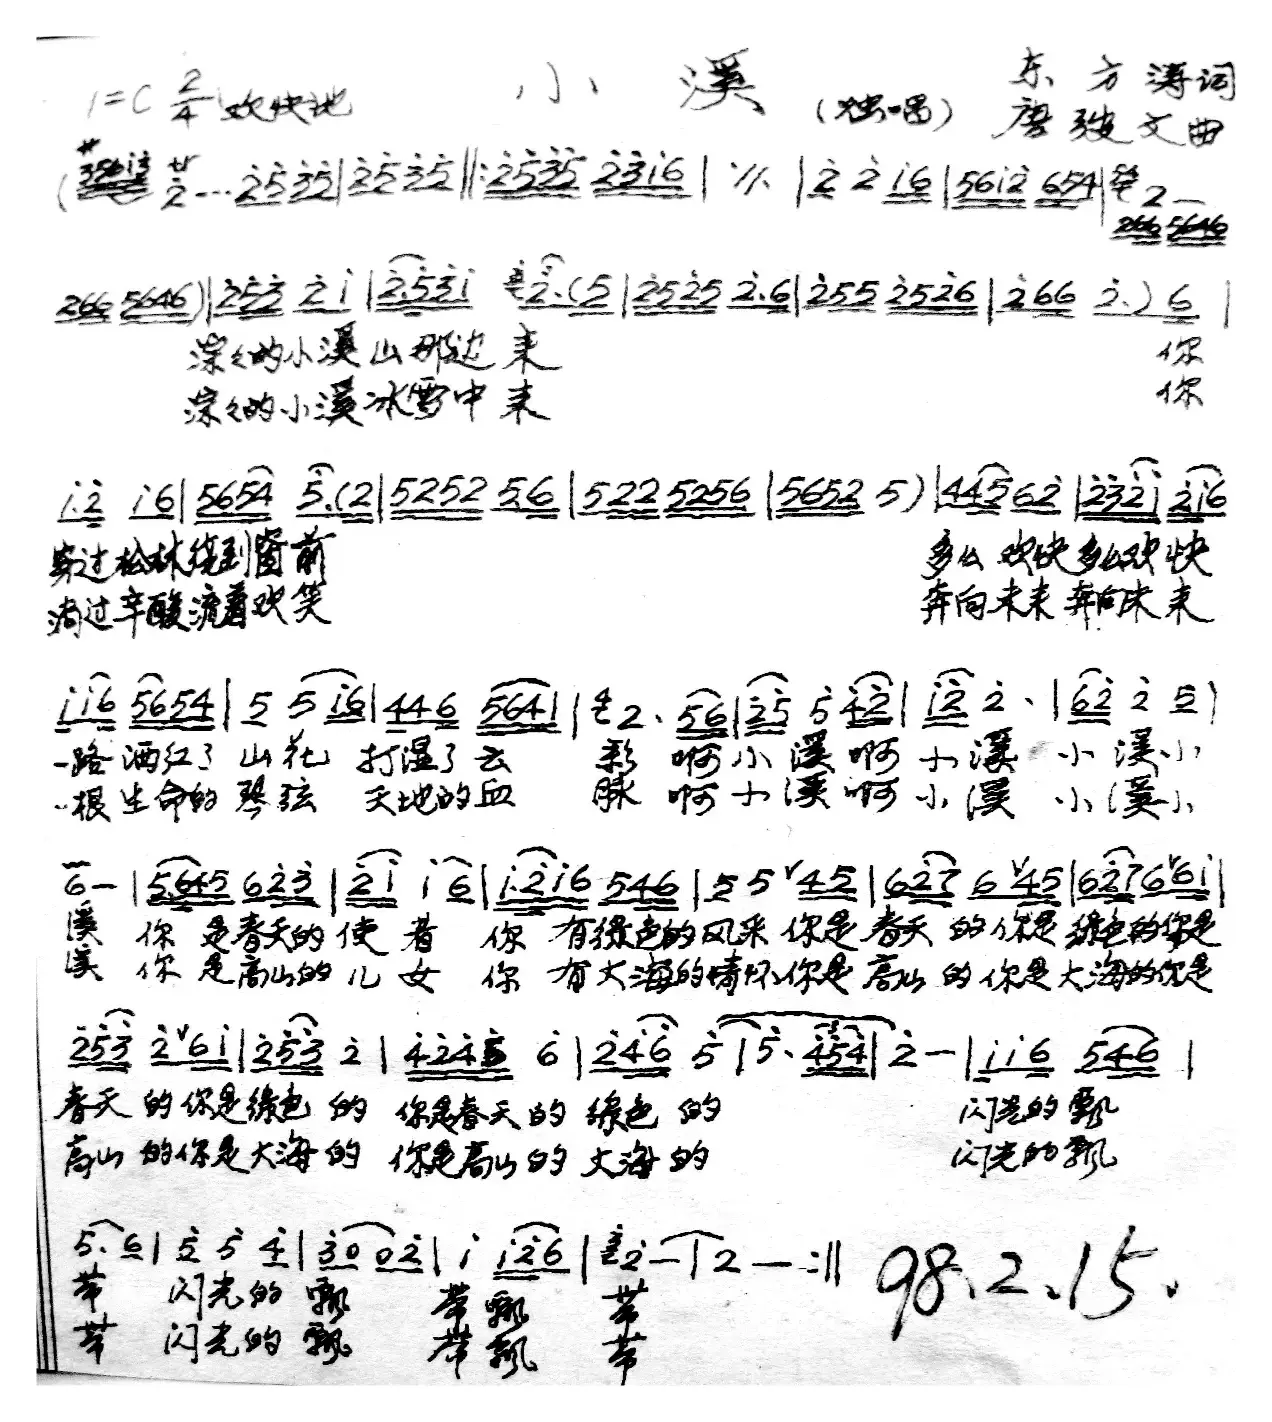 小溪
1=C 2/4 欢快地
(独唱)
东方涛词
唐 文曲
2 5 3 5 | 2 5 3 5 ‖: 2 5 3 5 2 3 i 6 | ·//· | 2 2 i 6 | 5 6 i 2 6 5 4 | 2 —
2 6 6 5 6 4 6
2 6 6 5 6 4 6 ) | 2 5 3 2 i | 2. 5 3 i 2. ( 5 | 2 5 2 5 2. 6 | 2 5 5 2 5 2 6 | 2 6 6 2. ) 6 |
淙々的小溪山那边来 你
淙々的小溪冰雪中来 你
i. 2 i 6 | 5 6 5 4 5. ( 2 | 5 2 5 2 5. 6 | 5 2 2 5 2 5 6 | 5 6 5 2 5 ) | 4 4 5 6 2 | 2 3 2 i 2 i 6
穿过松林绕到窗前 多么欢快多么欢快
淌过辛酸流着欢笑 奔向未来奔向未来
i i 6 5 6 5 4 | 5 5 i 6 | 4 4 6 5 6 4 1 | 2. 5 6 | 2 5 5 4 2 | i 2 2. | 6 2 2 5 |
一路洒红了山花 打湿了云彩 啊小溪啊小溪 小溪小
一根生命的琴弦 天地的血脉 啊小溪啊小溪 小溪小
6 — | 5. 6 4 5 6 2 3 | 2 i i 6 | i. 2 i 6 5 4 6 | 5 5 ∨ 4 5 | 6 2 7 6 ∨ 4 5 | 6 2 7 6 ∨ 6 i |
溪 你是春天的使者 你有绿色的风采你是春天的你是绿色的你是
溪 你是高山的儿女 你有大海的情怀你是高山的你是大海的你是
2 5 3 2 ∨ 6 i | 2 5 3 2 | 4 2 4 5 6 | 2 4 6 5 | 5. 4 5 4 | 2 — | i i 6 5 4 6 |
春天的你是绿色的 你是春天的绿色的 闪光的飘
高山的你是大海的 你是高山的大海的 闪光的飘
5. 6 | 5 5 4 | 3 0 0 2 | i i 2 6 | 2 — | 2 — :‖
带 闪光的飘 带飘 带
带 闪光的飘 带飘 带
98.2.15.